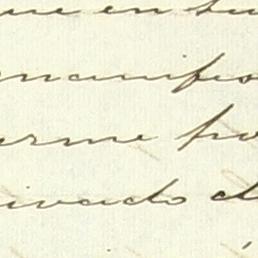 ue en su
manifes
erme po
ivado d